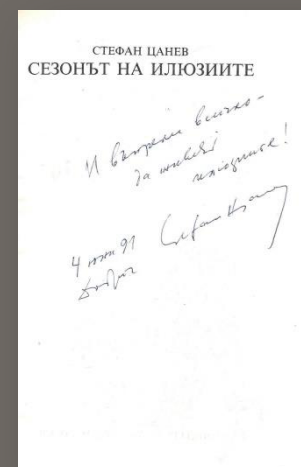 СТЕФАН ЦАНЕВ
СЕЗОНЪТ НА ИЛЮЗИИТЕ
И въпреки всичко -
да живеят
илюзиите!
4 юни 91 Стефан Цанев